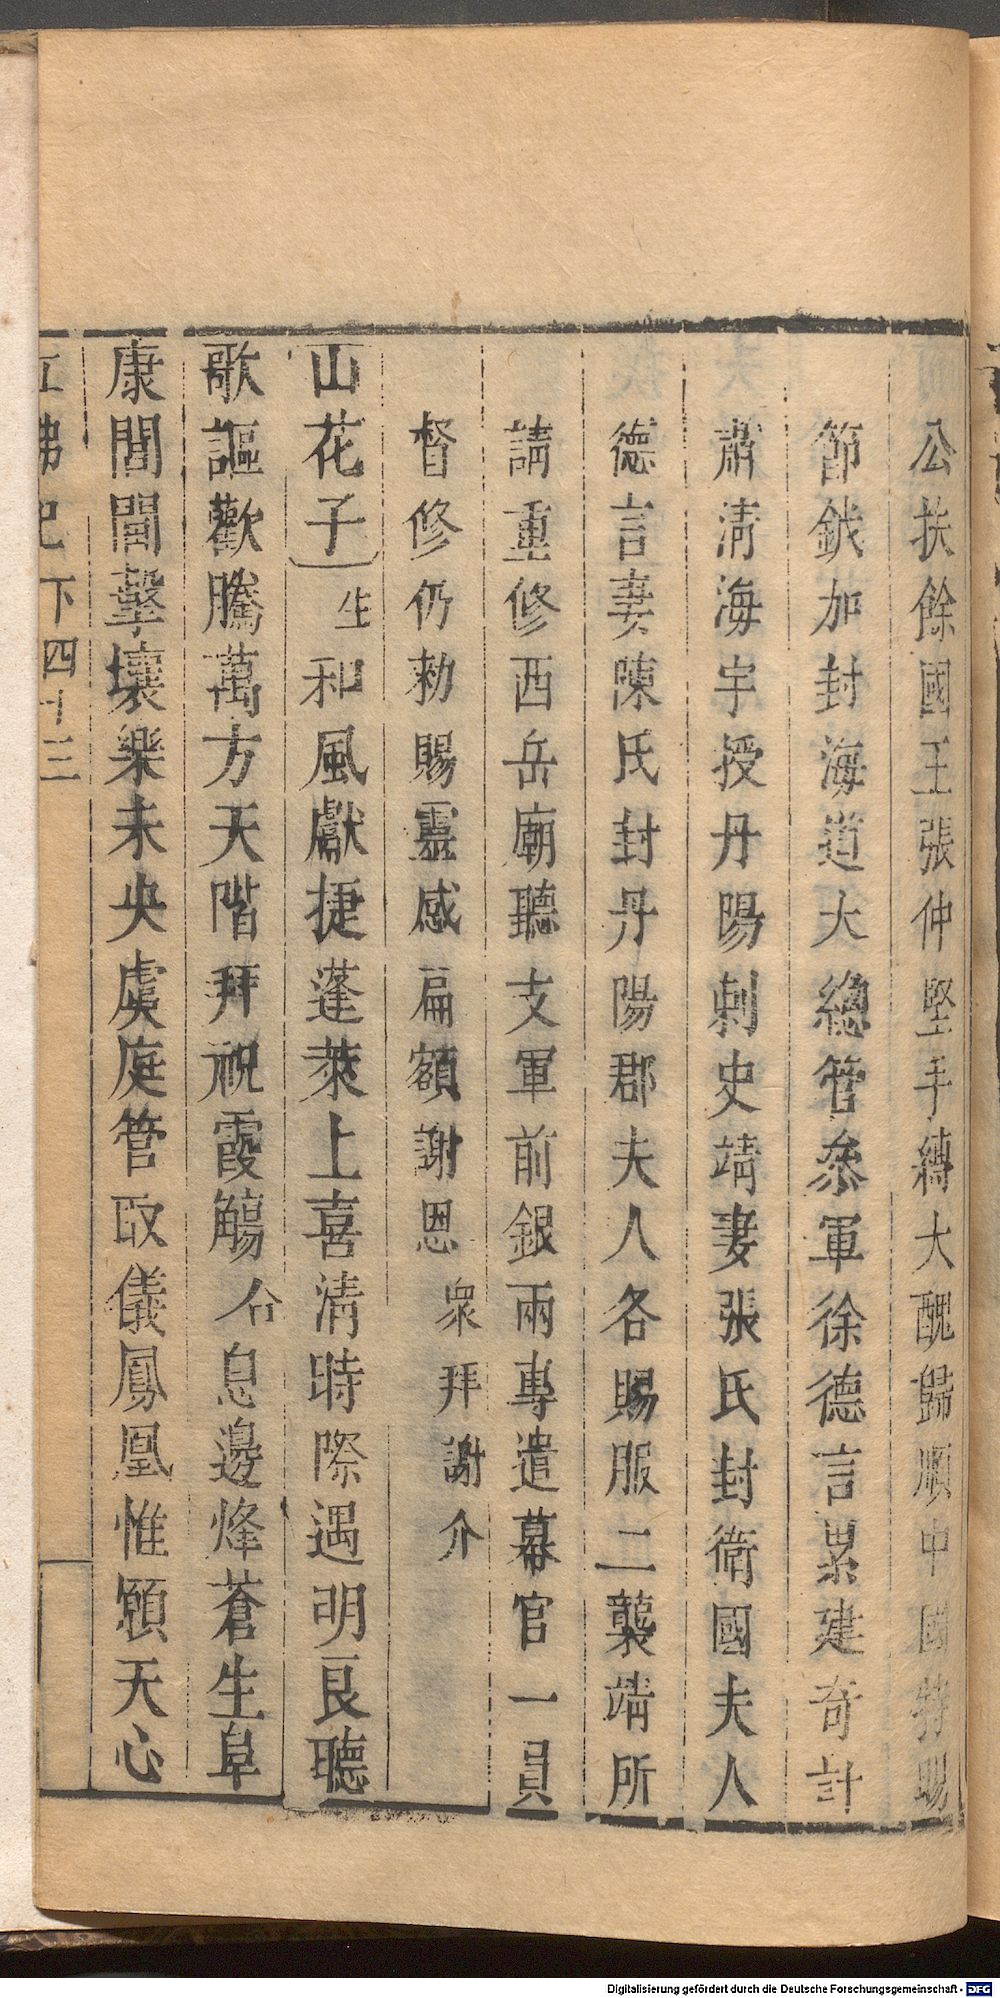 公扶餘國王張仲堅手縛大醜歸順中國特賜
節鉞加封海道大總管叅軍徐德言累建奇計
肅淸海宇授丹陽刺史靖妻張氏封衛國夫人
德言妻陳氏封丹陽郡夫人各賜服二襲靖所
請重修西岳廟聽支軍前銀兩專遣幕官一員
督修仍勑賜靈感扁額謝恩衆拜謝介
山花子生和風獻捷蓬萊上喜淸時際遇明良聽
歌謳歡騰萬方天階拜祝霞觴合息邊烽蒼生阜
康閭閻擊壤樂未央虞庭管取儀鳳凰惟願天心
紅拂記 下 四十三
Digitalisierung gefördert durch die Deutsche Forschungsgemeinschaft - DFG